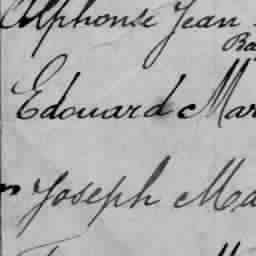 Alphonse Jean
Ba
Edouard Mar
Joseph Ma